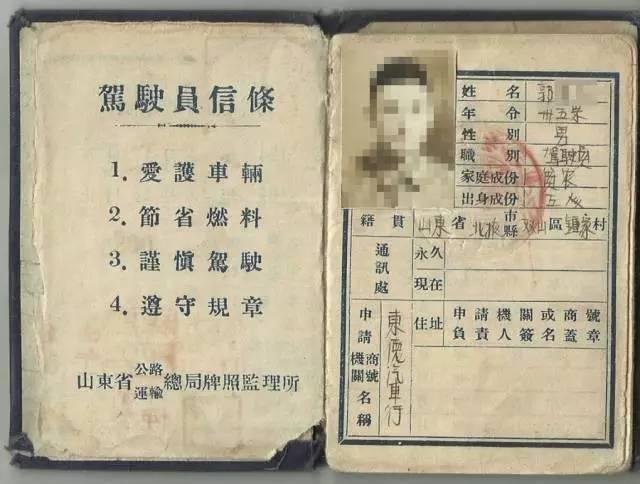 駕駛員信條
1. 愛護車輛
2. 節省燃料
3. 謹慎駕駛
4. 遵守規章
山東省公路運輸總局牌照監理所
姓名 郭
年令 卅五岁
性別 男
職別 駕駛員
家庭成份 貧农
出身成份
籍貫 山東省 市縣 区 村
通訊處 永久
現在
申請機關商號名稱 東德汽車行
住址
申請機關或商號
負責人簽名蓋章